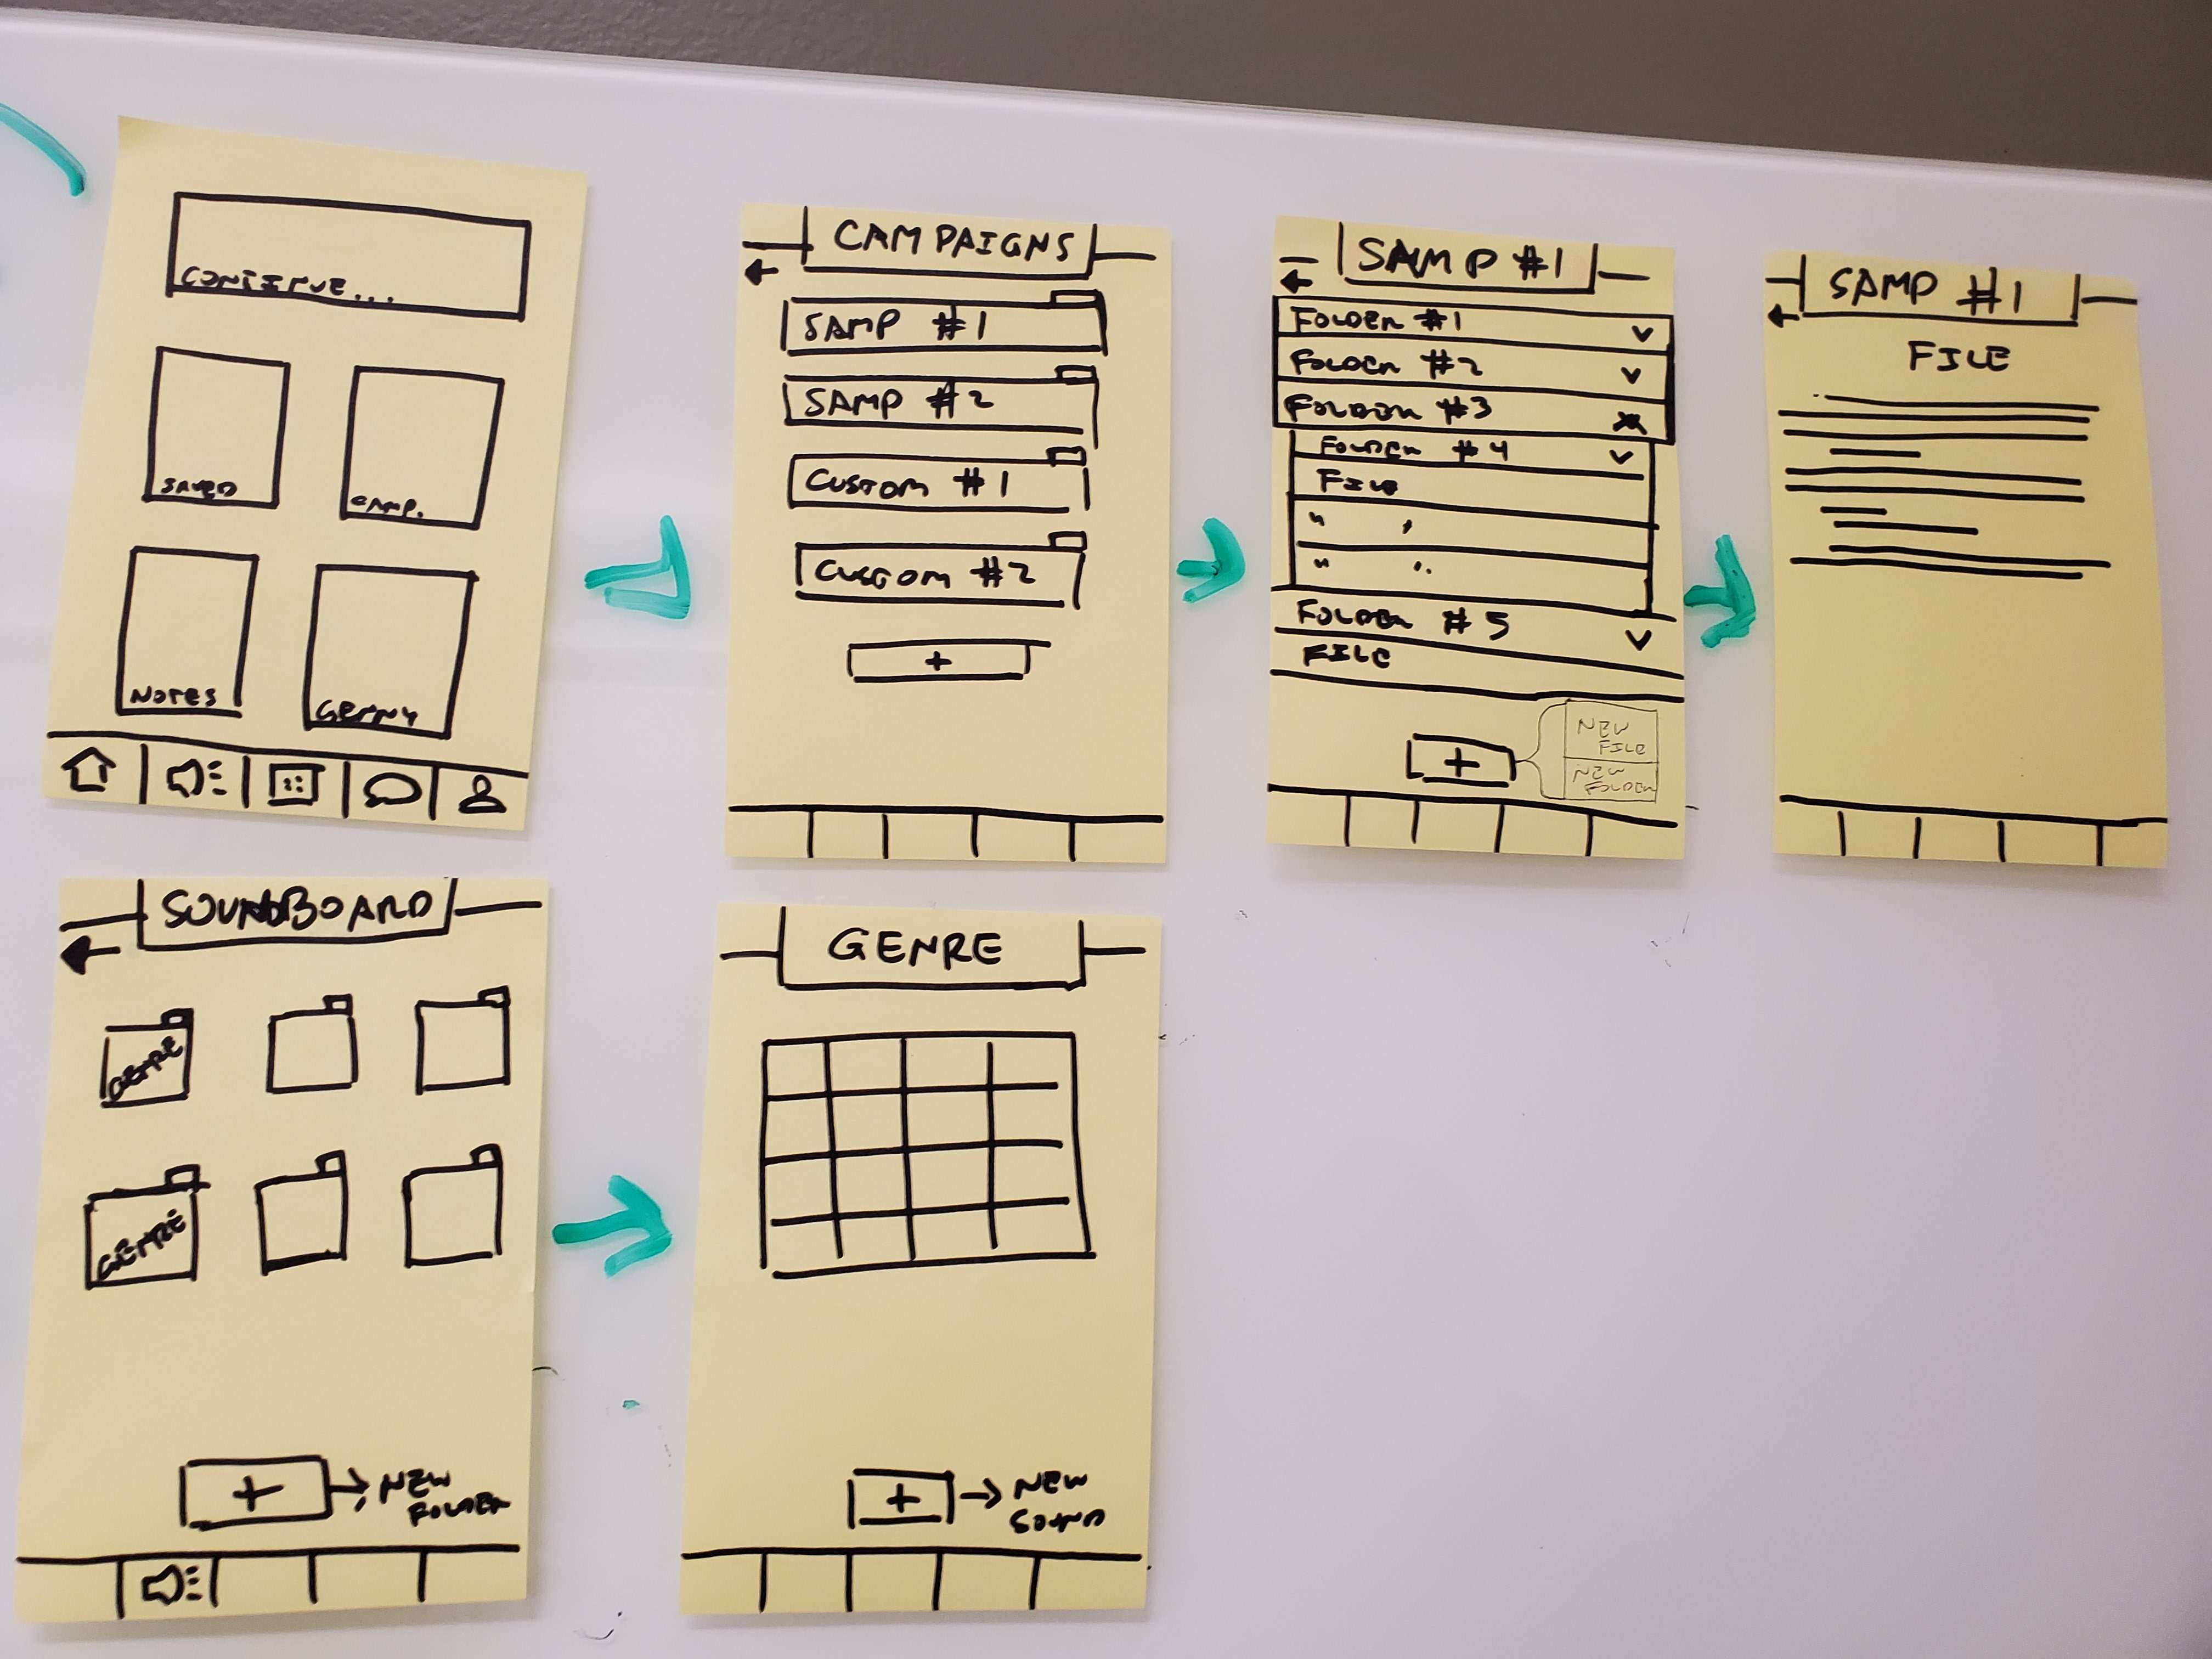 CONTINUE...
SAVED
CAMP.
NOTES
CAMPAIGNS
SAMP #1
SAMP #2
CUSTOM #1
CUSTOM #2
+
SAMP #1
FOLDER #1
FOLDER #2
FOLDER #3
FOLDER #4
FILE
" "
" "
FOLDER #5
FILE
+
NEW
FILE
NEW
FOLDER
SAMP #1
FILE
SOUNDBOARD
GENRE
GENRE
+ → NEW
FOLDER
GENRE
+ → NEW
SOUND